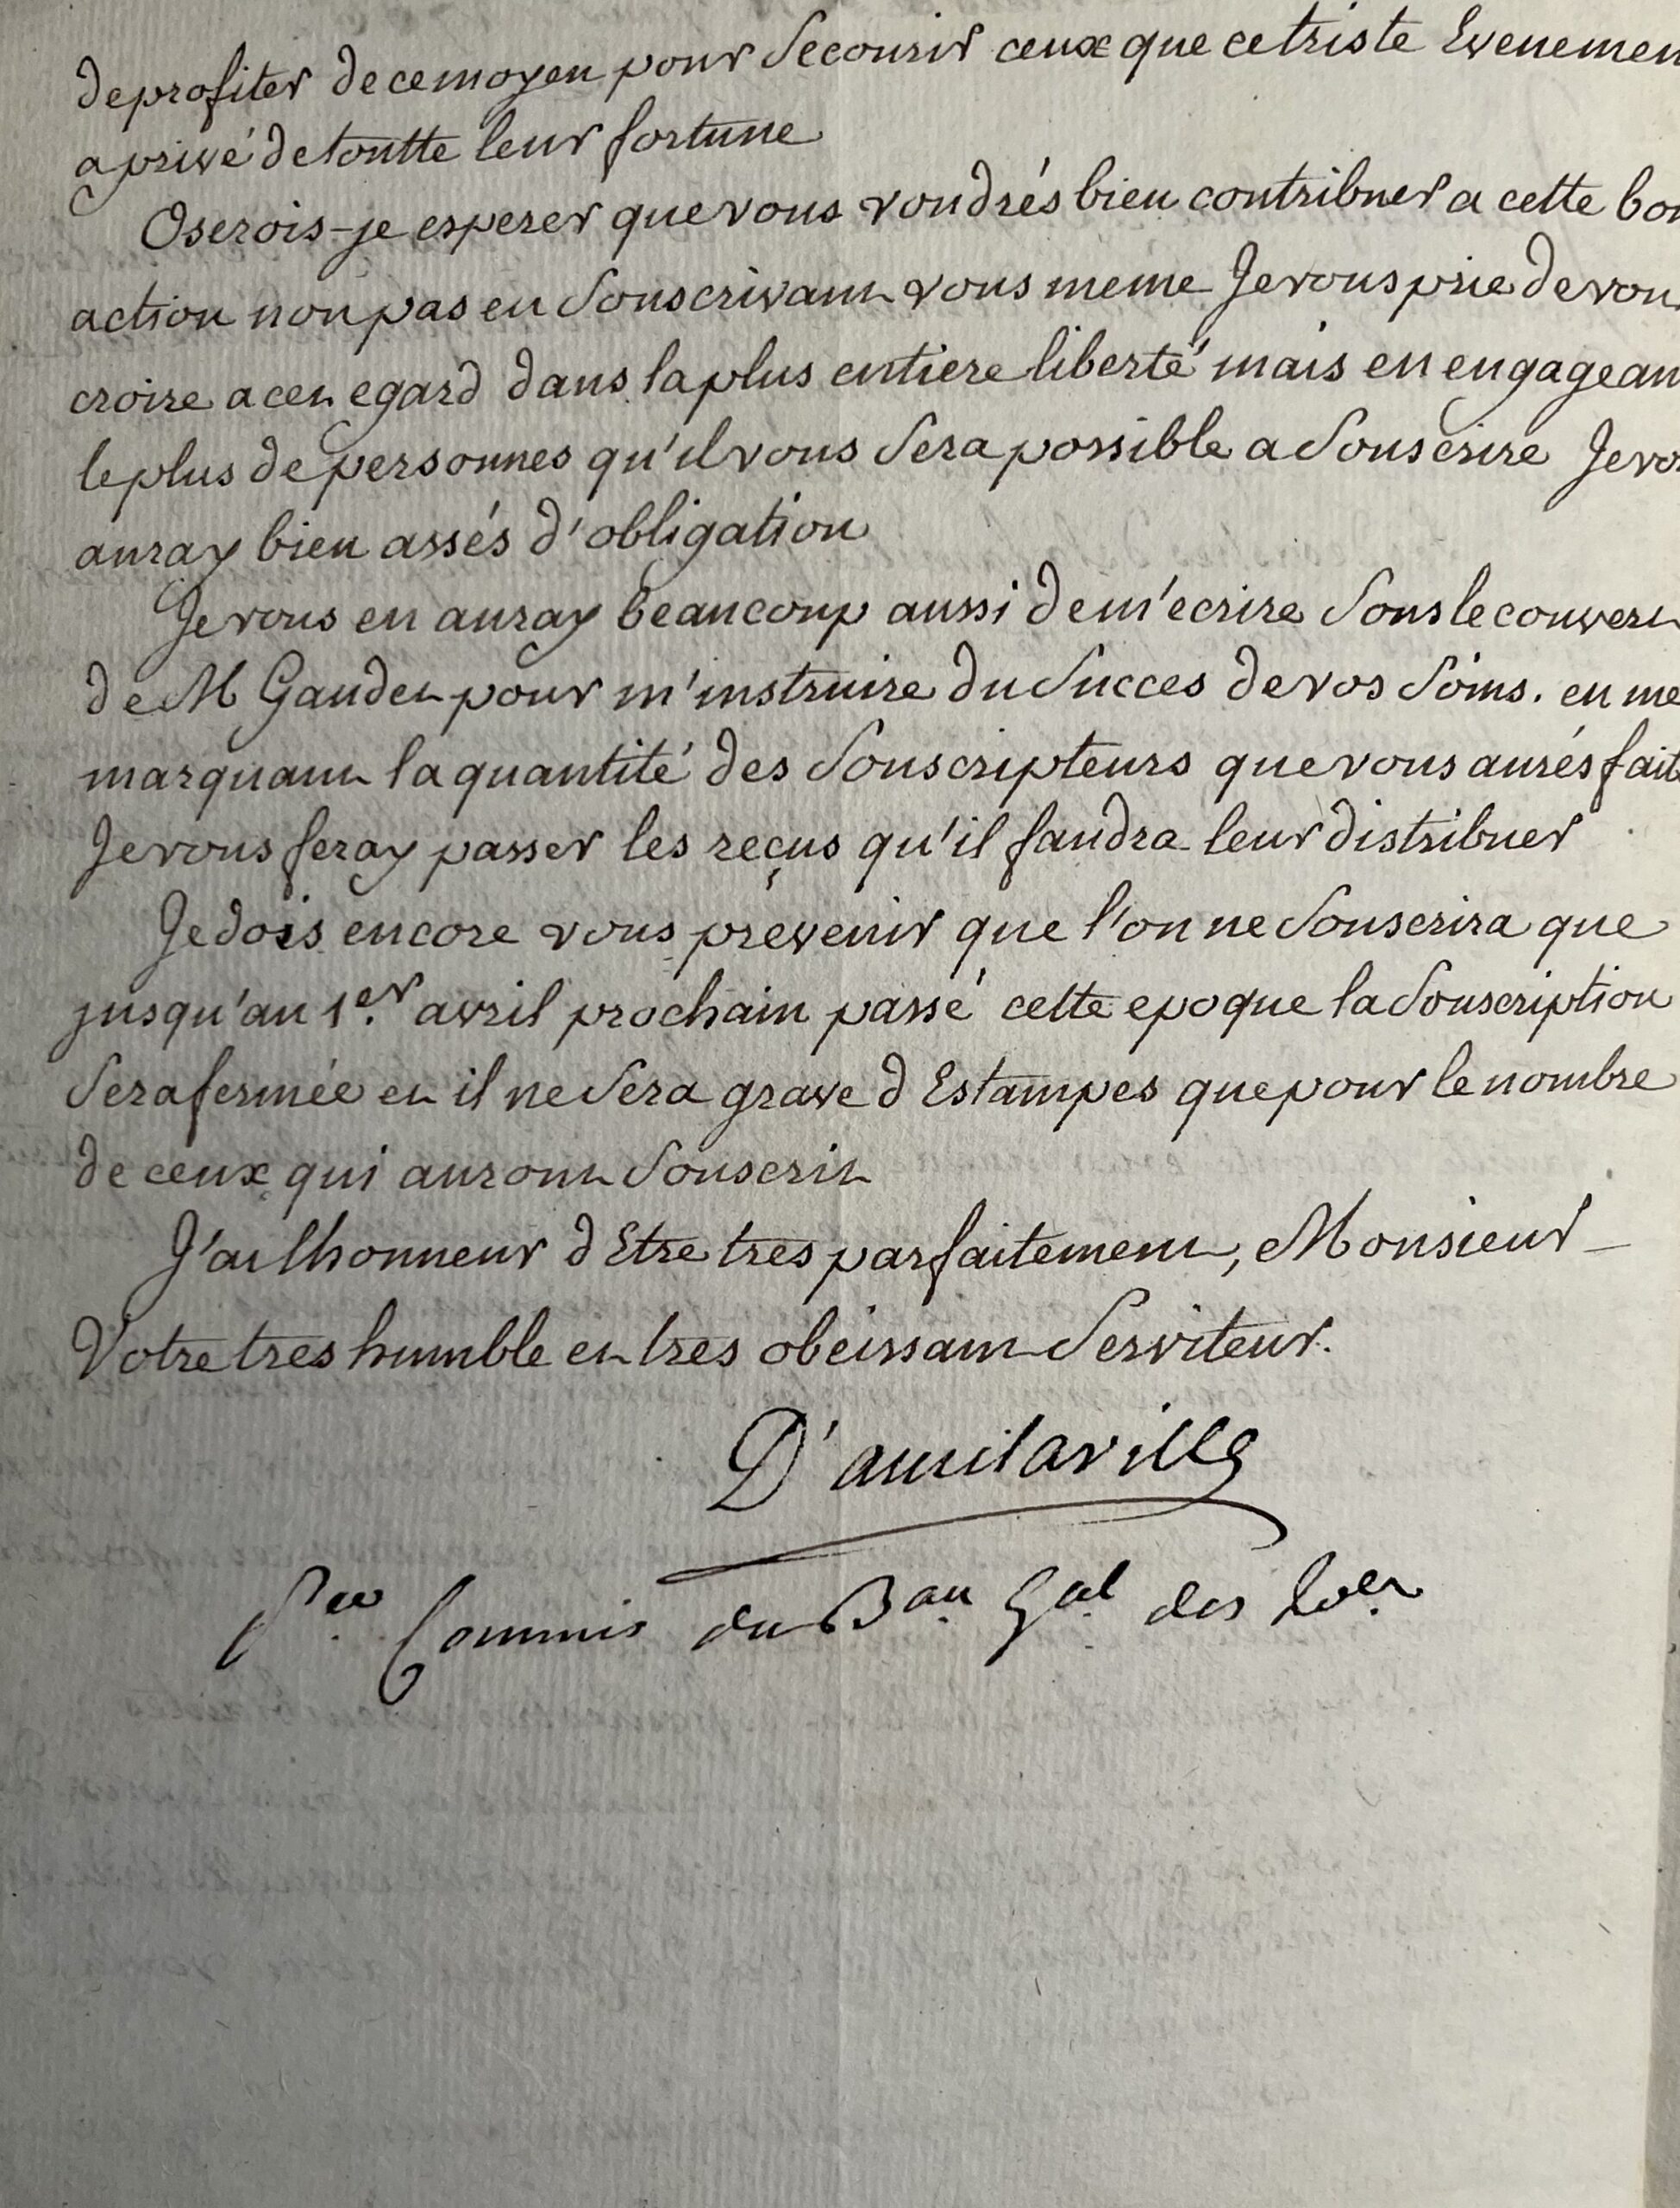 de profiter de ce moyen pour Secourir ceux que ce triste Evenemen
a privé de toutte leur fortune
Oserois-je esperer que vous voudrés bien contribuer a cette bon
action non pas en Souscrivant vous meme Je vous prie de vou
croire a cet egard dans la plus entiere liberté mais en engagean
le plus de personnes qu'il vous Sera possible a Souscrire Je vo
auray bien assés d'obligation
Je vous en auray beaucoup aussi de m'ecrire Sous le couvert
de M Gaudet pour m'instruire du Succes de vos Soins. en me
marquant la quantité des Souscripteurs que vous aurés fait
Je vous feray passer les reçus qu'il faudra leur distribuer
Je dois encore vous prevenir que l'on ne Souscrira que
jusqu'au 1.er avril prochain passé cette epoque la Souscription
Sera fermée et il ne Sera gravé d Estampes que pour le nombre
de ceux qui auront Souscrit
J'ai lhonneur d Etre tres parfaitement, Monsieur
Votre tres humble et tres obeissant Serviteur.
D'amilaville
P.er Commis du B.au G.al des